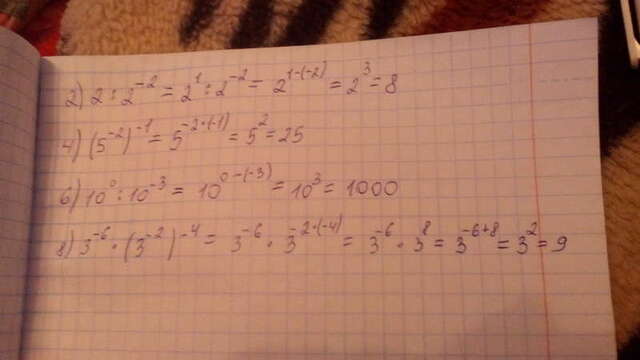 2) 2 : 2⁻² = 2¹ : 2⁻² = 2¹⁻⁽⁻²⁾ = 2³ = 8
4) (5⁻²)⁻¹ = 5⁻²·⁽⁻¹⁾ = 5² = 25
6) 10⁰ : 10⁻³ = 10⁰⁻⁽⁻³⁾ = 10³ = 1000
8) 3⁻⁶ · (3⁻²)⁻⁴ = 3⁻⁶ · 3⁻²·⁽⁻⁴⁾ = 3⁻⁶ · 3⁸ = 3⁻⁶⁺⁸ = 3² = 9